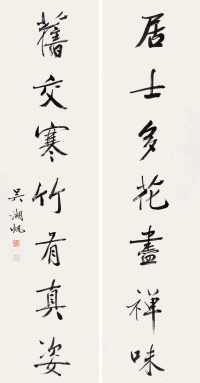 居士多花盡禪味
舊交寒竹有真姿
吳湖帆